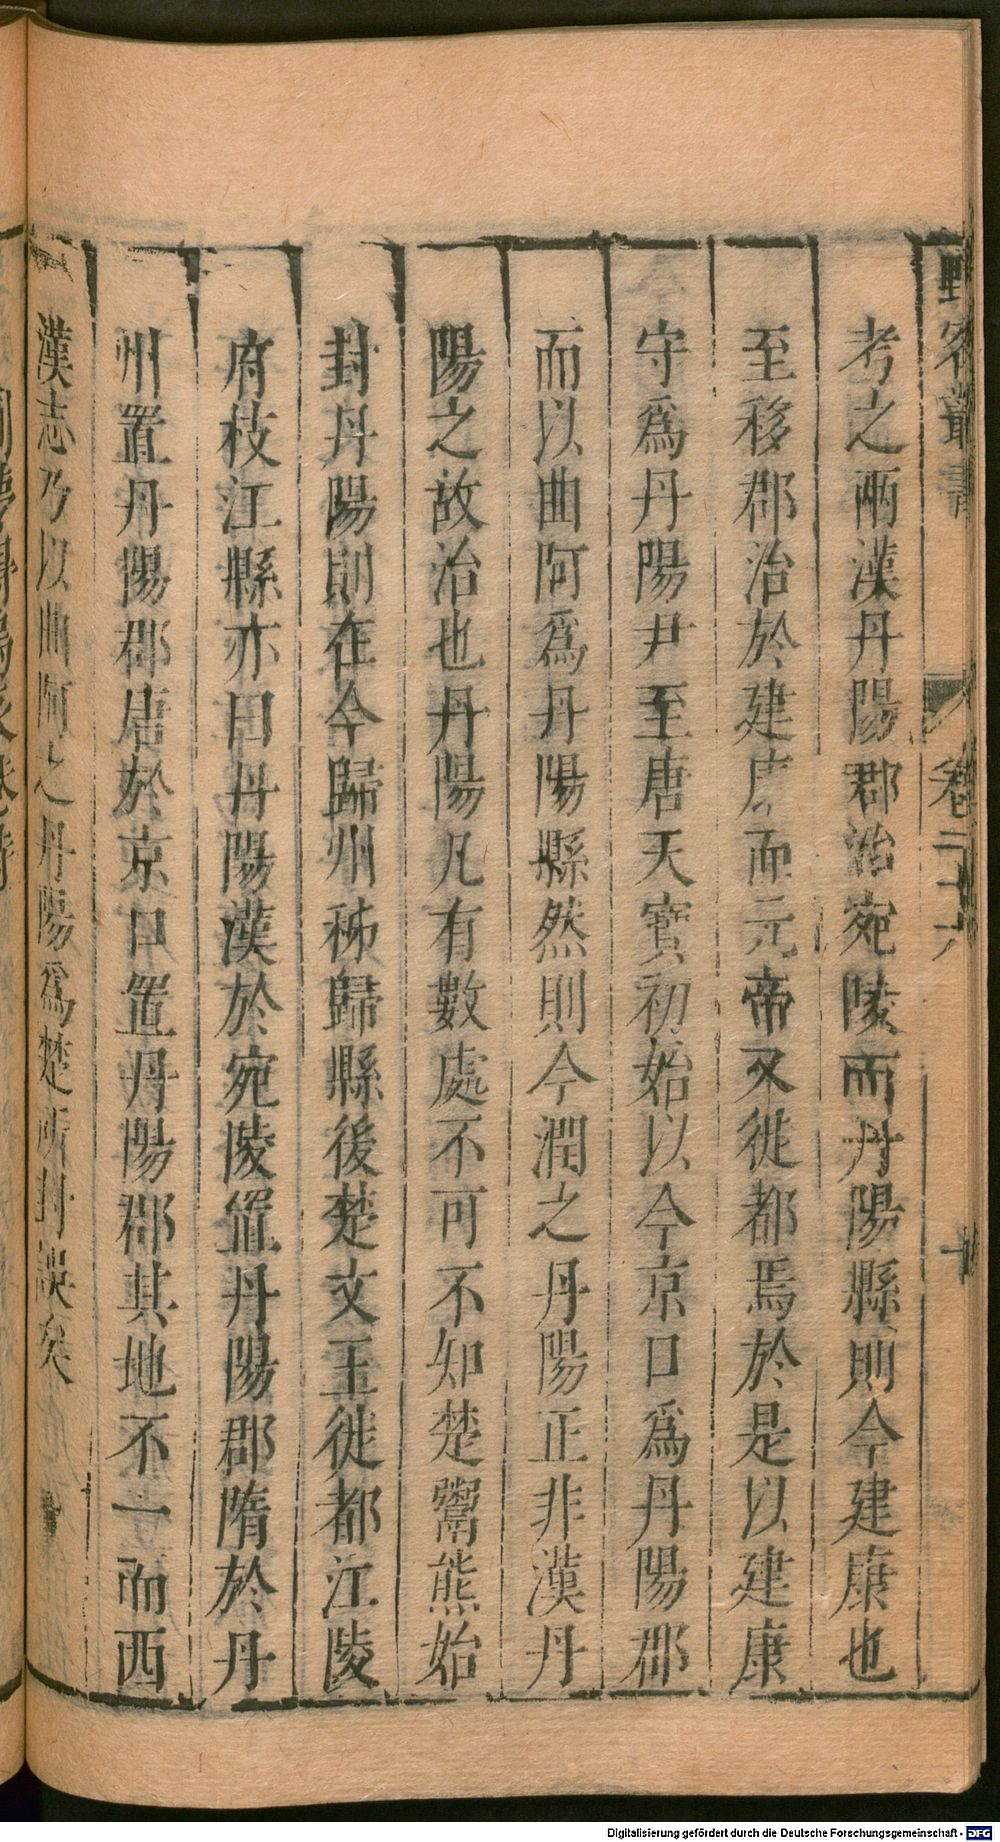 野客叢書
卷二十六
十
考之兩漢丹陽郡治宛陵而丹陽縣則今建康也
至移郡治於建康而元帝又徙都焉於是以建康
守爲丹陽尹至唐天寶初始以今京口爲丹陽郡
而以曲阿爲丹陽縣然則今潤之丹陽正非漢丹
陽之故治也丹陽凡有數處不可不知楚鬻熊始
封丹陽則在今歸州秭歸縣後楚文王徙都江陵
府枝江縣亦曰丹陽漢於宛陵置丹陽郡隋於丹
州置丹陽郡唐於京口置丹陽郡其地不一而西
漢志乃以曲阿之丹陽爲楚所封誤矣
Digitalisierung gefördert durch die Deutsche Forschungsgemeinschaft - DFG